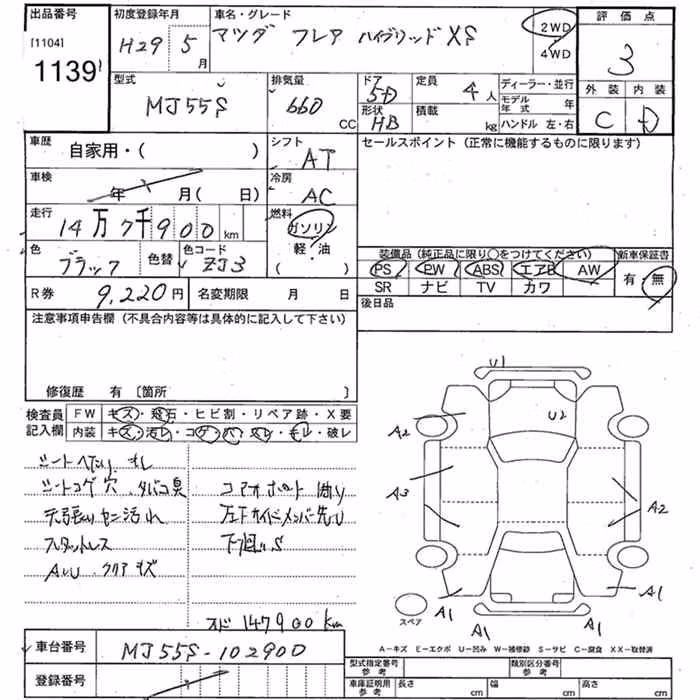 出品番号 初度登録年月 車名・グレード 評価点
[1104] H29 5月 マツダ フレア ハイブリッド XS 2WD 3
1139 4WD
型式 排気量 ドア 定員 ディーラー・並行 外装 内装
MJ55S 660 CC 5D 4人 モデル年式 年 C D
形状 積載 ハンドル 左・右
HB kg
車歴 シフト セールスポイント(正常に機能するものに限ります)
自家用・( ) AT
車検 冷房
年 月(日) AC
走行 燃料
14万7千900km ガソリン
色 色替 色コード 軽・油 装備品(純正品に限り○をつけてください) 新車保証書
ブラック ZJ3 ( ) PS PW ABS エアB AW 有・無
R券 9,220円 名変期限 月 日 SR ナビ TV カワ
注意事項申告欄(不具合内容等は具体的に記入して下さい) 後日品
修復歴 有〔箇所 〕
検査員記入欄 FW キズ・飛石・ヒビ割・リペア跡・X要
内装 キズ・汚レ・コゲ・穴・スレ・モレ・破レ
シートヘたり、スレ
シートコゲ穴、タバコ臭 コアサポート曲り
天張り ヤニ汚れ 左右サイドメンバー先凹
スタットレス 下廻りS
AW クリアキズ
メーター
オド 147900km
車台番号 MJ55S-102900
登録番号
U1
U2
A2
A3 A2
A1 A1
A1
スペア
A1
A-キズ E-エクボ U-凹み W-補修跡 S-サビ C-腐食 XX-取替済
型式指定番号 参考 類別区分番号 参考
車庫証明用 参考 長さ cm 幅 cm 高さ cm